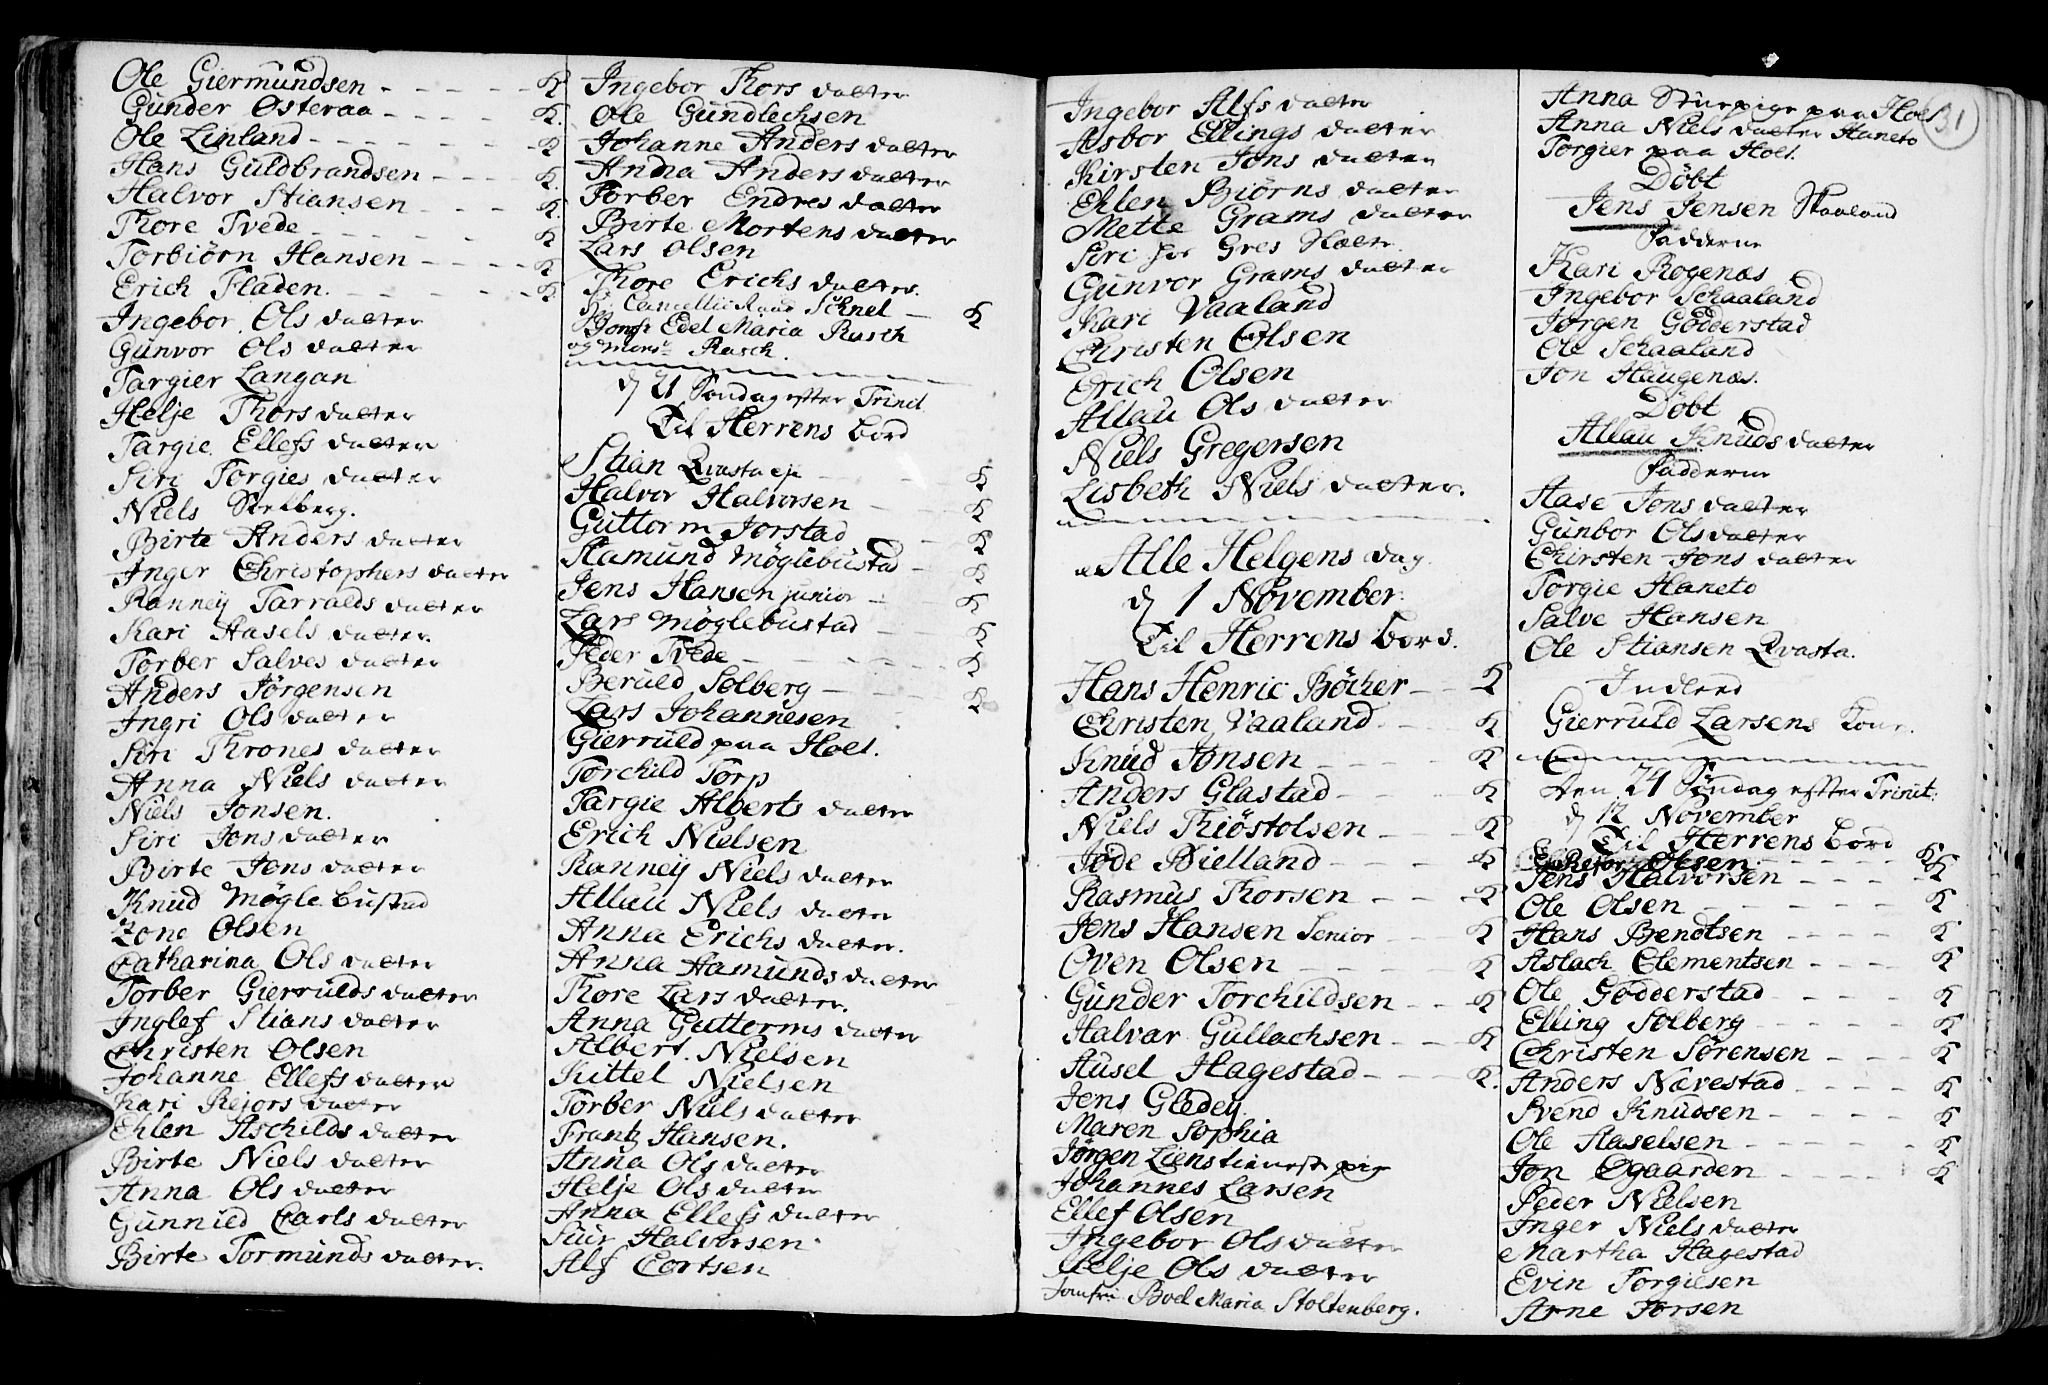 Ole Giermundsen - - - - - K
Gunder Østeraa - - - - K.
Ole Linland - - - - - - - K
Hans Guldbrandsen - - - - K.
Halvor Stiansen - - - K.
Thore Tvede - - - - - - K
Torbiørn Hansen - - - - K
Erich Fladen. - - - - - - K
Ingebor Ols datter
Gunvor Ols datter
Targier Langan
Helje Thors datter
Targie Ellefs datter
Siri Torgies datter
Niels
Birte Anders datter
Inger Christophers datter
Ranneÿ Tarralds datter
Kari Aasels datter.
Torber Salves datter
Anders Jørgensen
Ingri Ols datter
Siri Thrones datter
Anna Niels datter
Niels Jonsen.
Siri Jons datter
Birte Jens datter
Knud Møgle bustad
Zone Olsen
Catharina Ols datter
Torber Gierrulds datter
Inglef Stians datter
Christen Olsen
Johanne Ellefs datter
Kari Rejors datter
Ehlen Aschilds datter
Birte Niels datter
Anna Ols datter
Gunnild Carls datter
Birte Tormunds datter.
Ingebor Thors datter
Ole Gundlechsen
Johanne Anders datter
Anna Anders datter
Torber Endres datter
Birte Mortens datter
Lars Olsen
Thore Erichs datter.
Hr Cancellie Raad Schnel - K
Jomfr Edel Maria Rasch
og Mons Rasch.
d 21 Søndag efter Trinit
Til Herrens bord
Stian Qvasta eje - - - - K
Halvor Halvorsen - - - K
Guttorm Jorstad - - K
Aamund Møglebustad - K
Jens Hansen junior - - K
Lars Møglebustad - - - K
Peder Tvede - - - - - K
Beruld Solberg - - - - K
Lars Johannesen
Gierruld paa Hoel.
Torchild Torp
Targie Alberts datter
Erich Nielsen
Ranneÿ Niels datter
Allau Niels datter
Anna Erichs datter.
Anna Aamunds datter
Thore Lars datter.
Anna Guttorms datter
Albert Nielsen
Kittel Nielsen
Torber Niels datter
Frantz Hansen.
Anna Ols datter
Helje Ols datter
Anna Ellefs datter
Siur Halvorsen
Alf Cortsen
Ingebor Alfs datter
Asbor Ellings datter
Kirsten Jons datter
Ehlen Biørns datter
Mette Grams datter
Siri
Gunvor Grams datter
Kari Vaaland
Christen Olsen
Erich Olsen
Allau Ols datter
Niels Gregersen
Lisbeth Niels datter.
Alle Helgens dag.
d 1 November.
Til Herrens bord.
Hans Henric Bøcher - - K
Christen Vaaland - - K
Knud Jonsen - - - - K
Anders Glastad - - - - K
Niels Thiøstolsen - - - K
Jøde Bielland - - - - K
Rasmus Thorsen - - - K
Jens Hansen Senior - - K
Oven Olsen - - - - - K
Gunder Torchildsen - - - K
Halvar Gullachsen - - - K
Ausel Hagestad - - - K.
Jens Gledeÿ
Maren Sophia
Jørgen Liens tienest pige
Johannes Larsen
Ellef Olsen
Ingebor Ols datter
Helje Ols datter
Jomfru Boel Maria Stoltenberg.
31
Anna Stuepige paa Hoel
Anna Niels datter Haneto
Torgier paa Hoel.
Døbt
Jens Jensen Skaaland
Fadderne
Kari Rogenæs
Ingebor Schaaland
Jørgen Godderstad
Ole Schaaland
Jon Haugenæs.
Døbt
Allau Knuds datter
Fadderne
Aase Jons datter
Gunbor Olsdatter
Chirsten Jons datter
Torgie Haneto
Salve Hansen
Ole Stiansen Qvasta.
Indleed
Gierruld Larsens Kone.
Den 24 Søndag efter Trinit:
d 12 November
Til Herrens bord
Rejor Olsen - - - - - K
Jens Halvorsen - - - - K
Ole Olsen - - - - - - K
Hans Bendtsen - - - - K
Aslach Clementsen - - - - K
Ole Godderstad - - - - K
Elling Solberg - - - - - K
Christen Sørensen - - - K
Anders Nærestad - - - - K
Svend Knudsen - - - - - K
Ole Aaselsen - - - - - K
Jon Øgaarden - - - - - K
Peder Nielsen
Inger Niels datter
Martha Hagestad
Evin Torgiesen
Arne Torsen